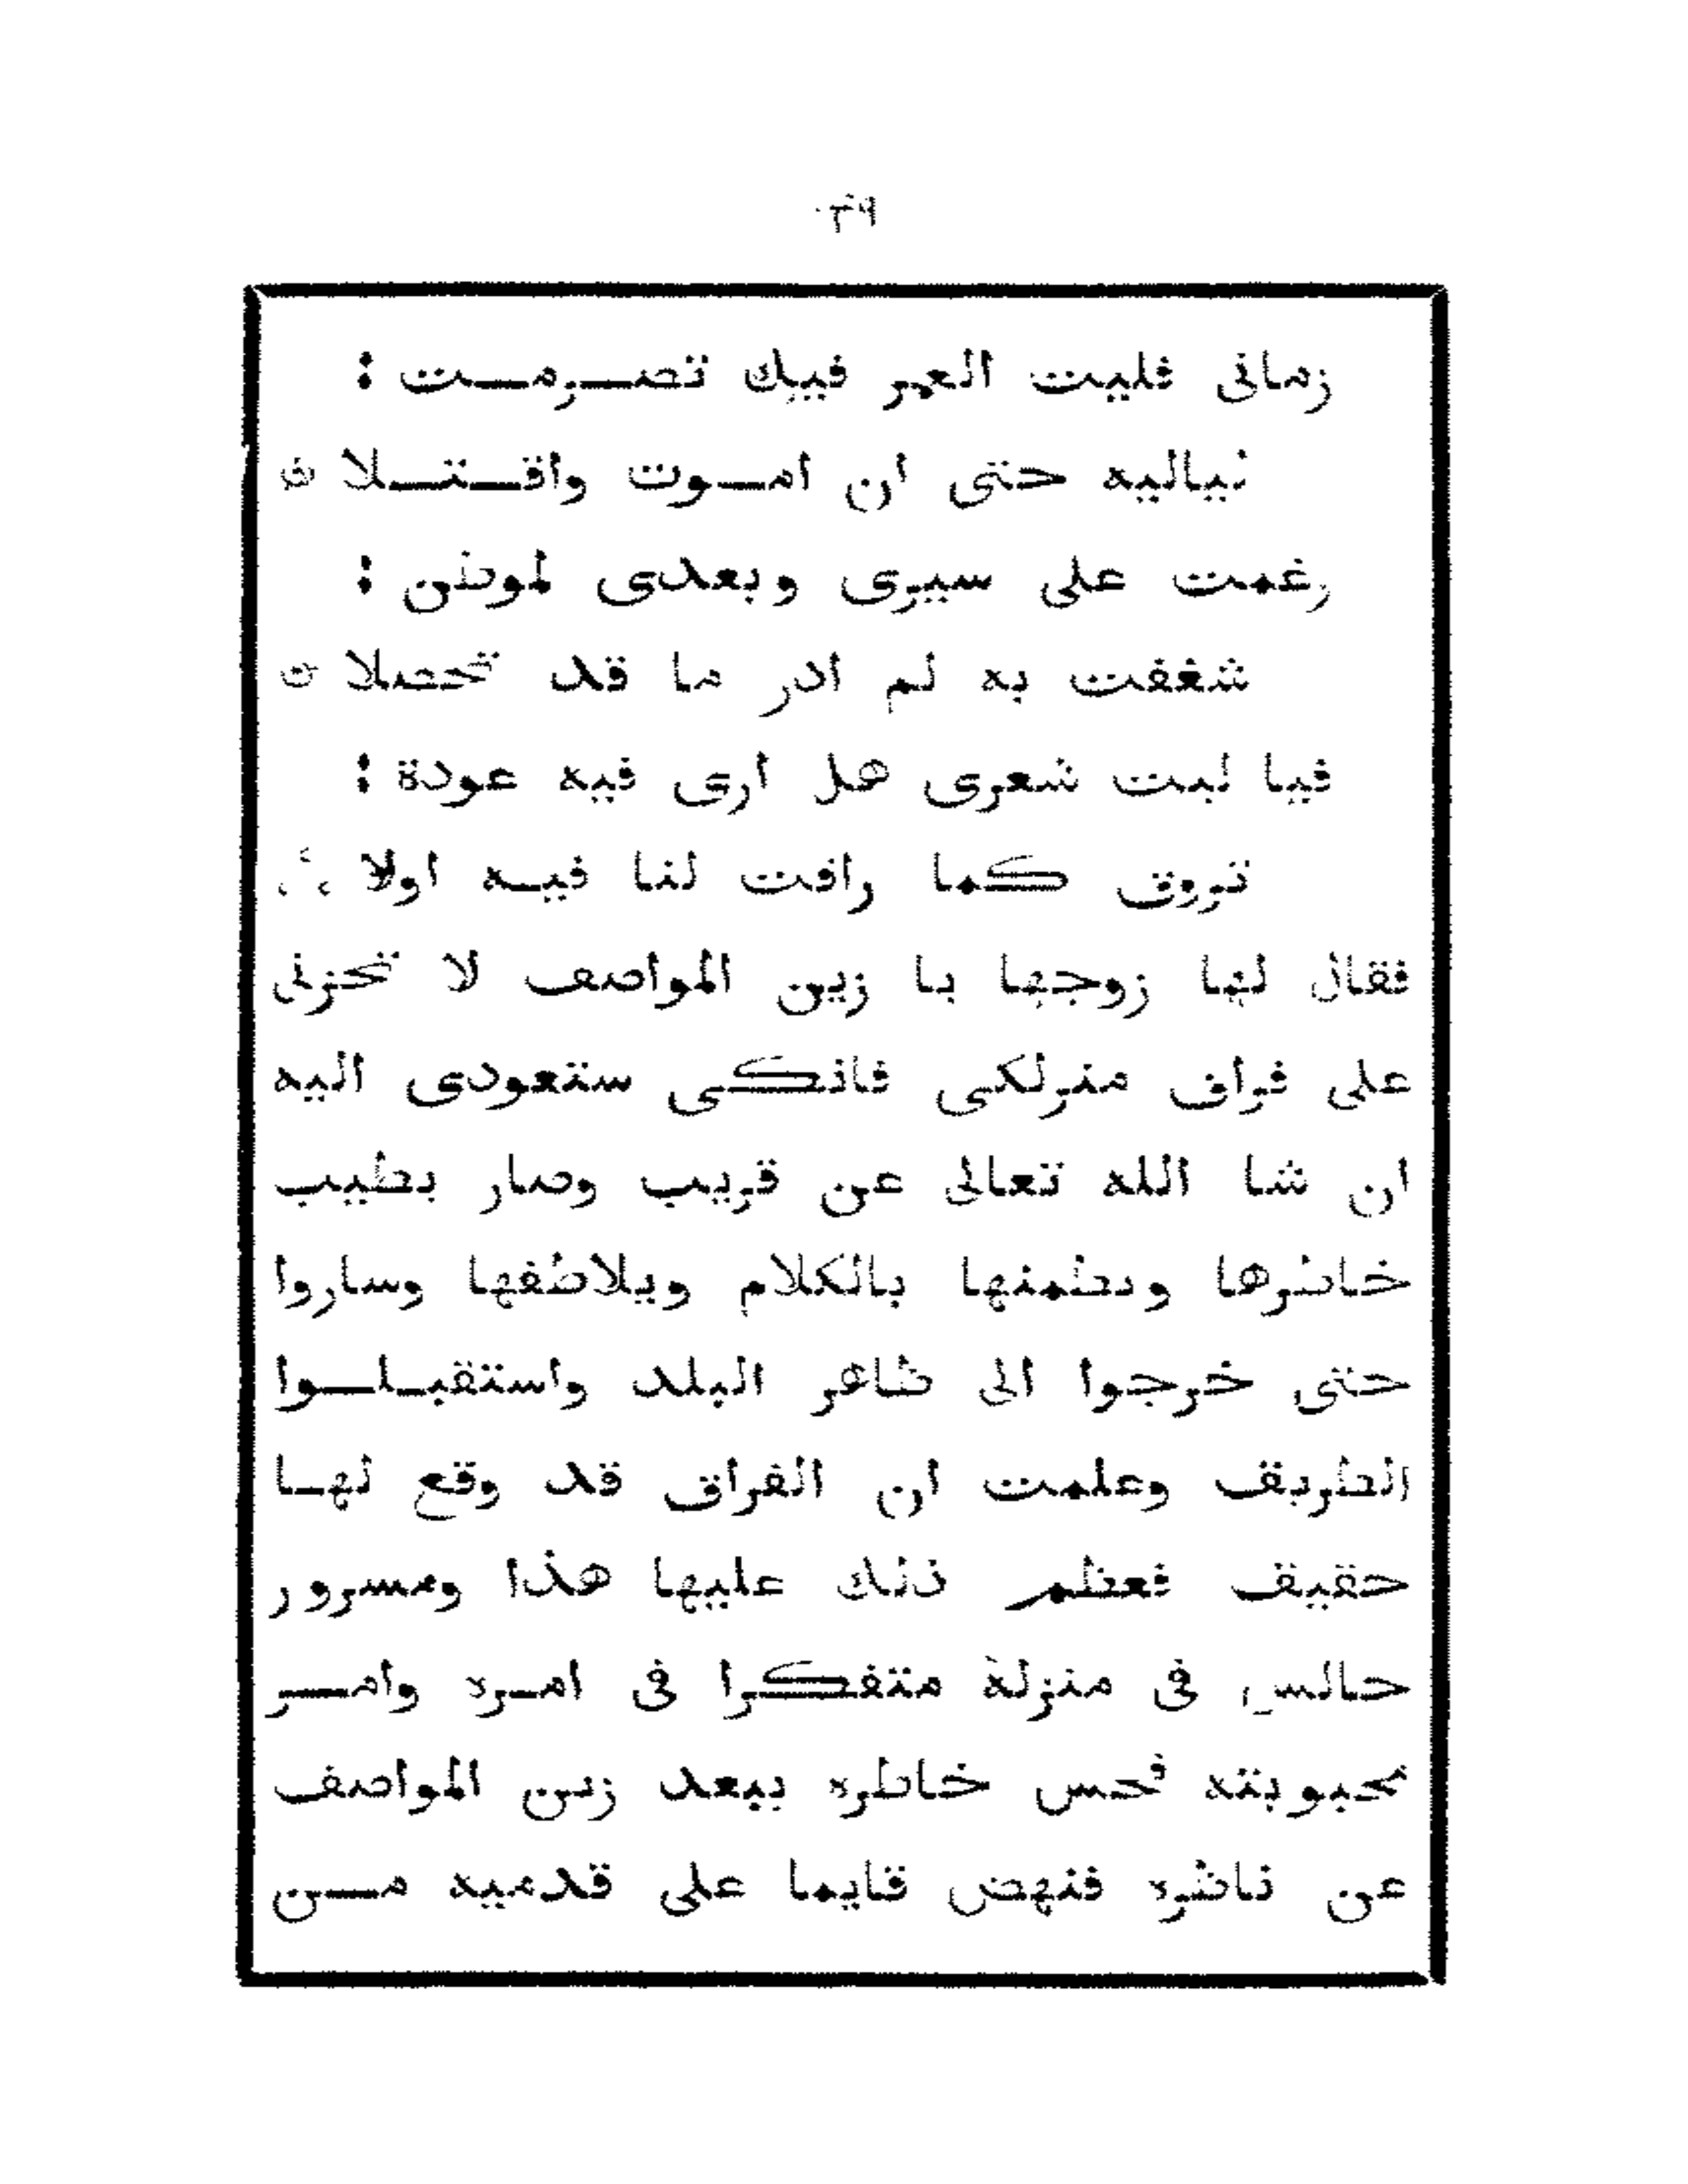 ٣٩
زمانى فليت العمر فيك تصرمت :
لياليه حتى ان اموت واقتلا ن
رغمت على سيرى وبعدى لموطن :
شغفت به لم ادر ما قد تحصلا ن
فيا ليت شعرى هل ارى فيه عودة :
تروق كما راقت لنا فيه اولا
فقال لها زوجها يا زين المواصف لا تحزنى
على فراق منزلكى فانكى ستعودى اليه
ان شا الله تعالى عن قريب وصار يطيب
خاطرها ويطمنها بالكلام ويلاطفها وساروا
حتى خرجوا الى ظاهر البلد واستقبلوا
الطريق وعلمت ان الفراق قد وقع لها
حقيق فعظم ذلك عليها هذا ومسرور
جالس فى منزلة متفكرا فى امره وامر
محبوبته فحس خاطره ببعد زين المواصف
عن ناظره فنهض قايما على قدميه من